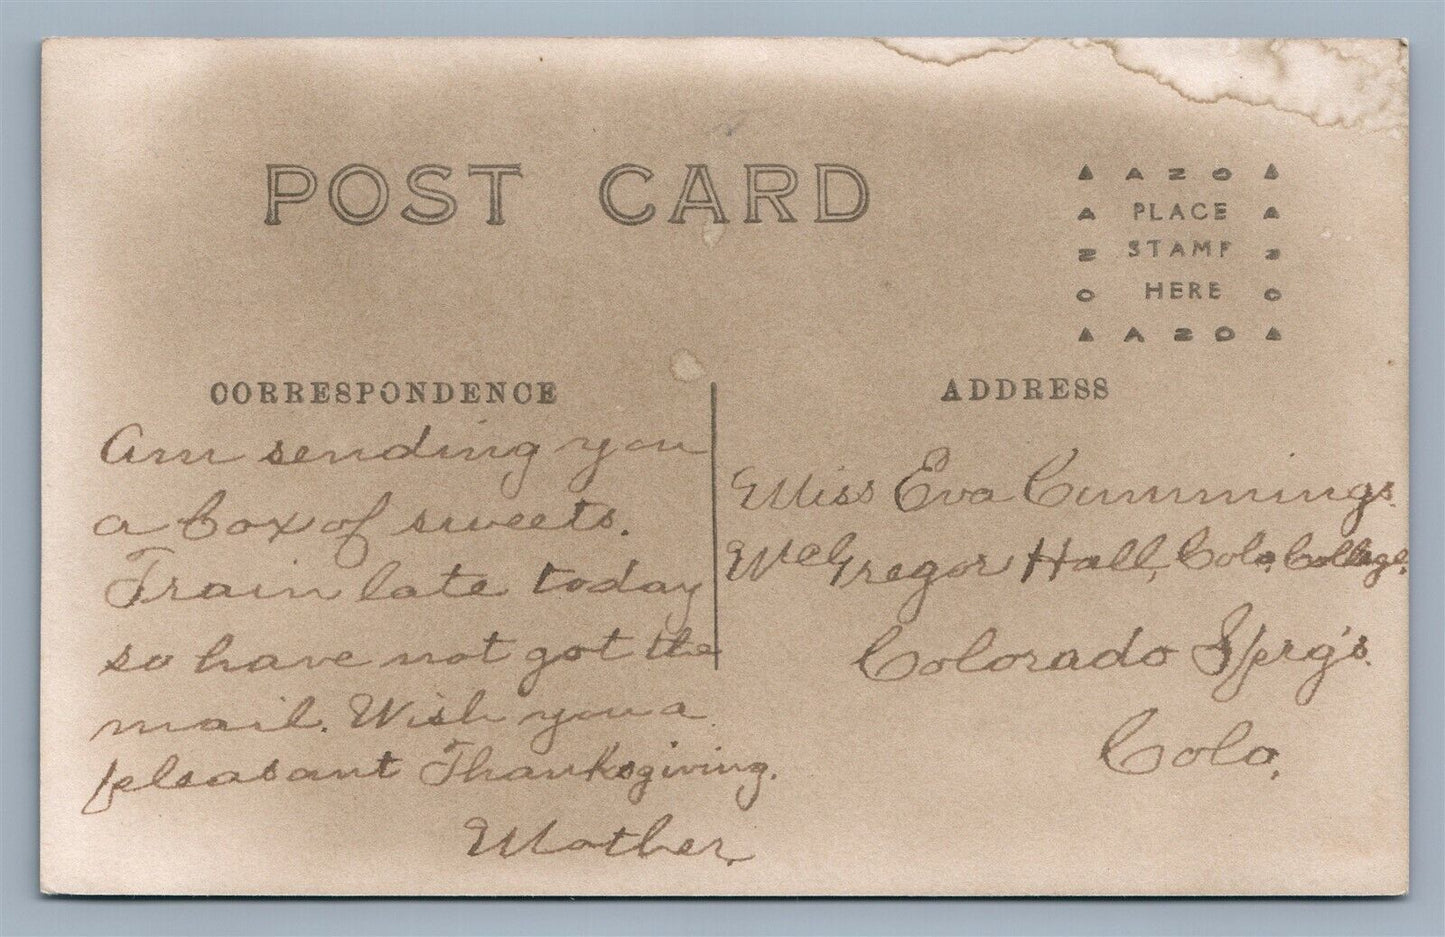 POST CARD
▲ A Z O ▲
A PLACE A
Z STAMP Z
O HERE O
▲ A Z O ▲
CORRESPONDENCE
Am sending you
a box of sweets.
Train late today
so have not got the
mail. Wish you a
pleasant Thanksgiving.
Mother.
ADDRESS
Miss Eva Cummings.
McGregor Hall, Colo, College,
Colorado Sprg's.
Colo,